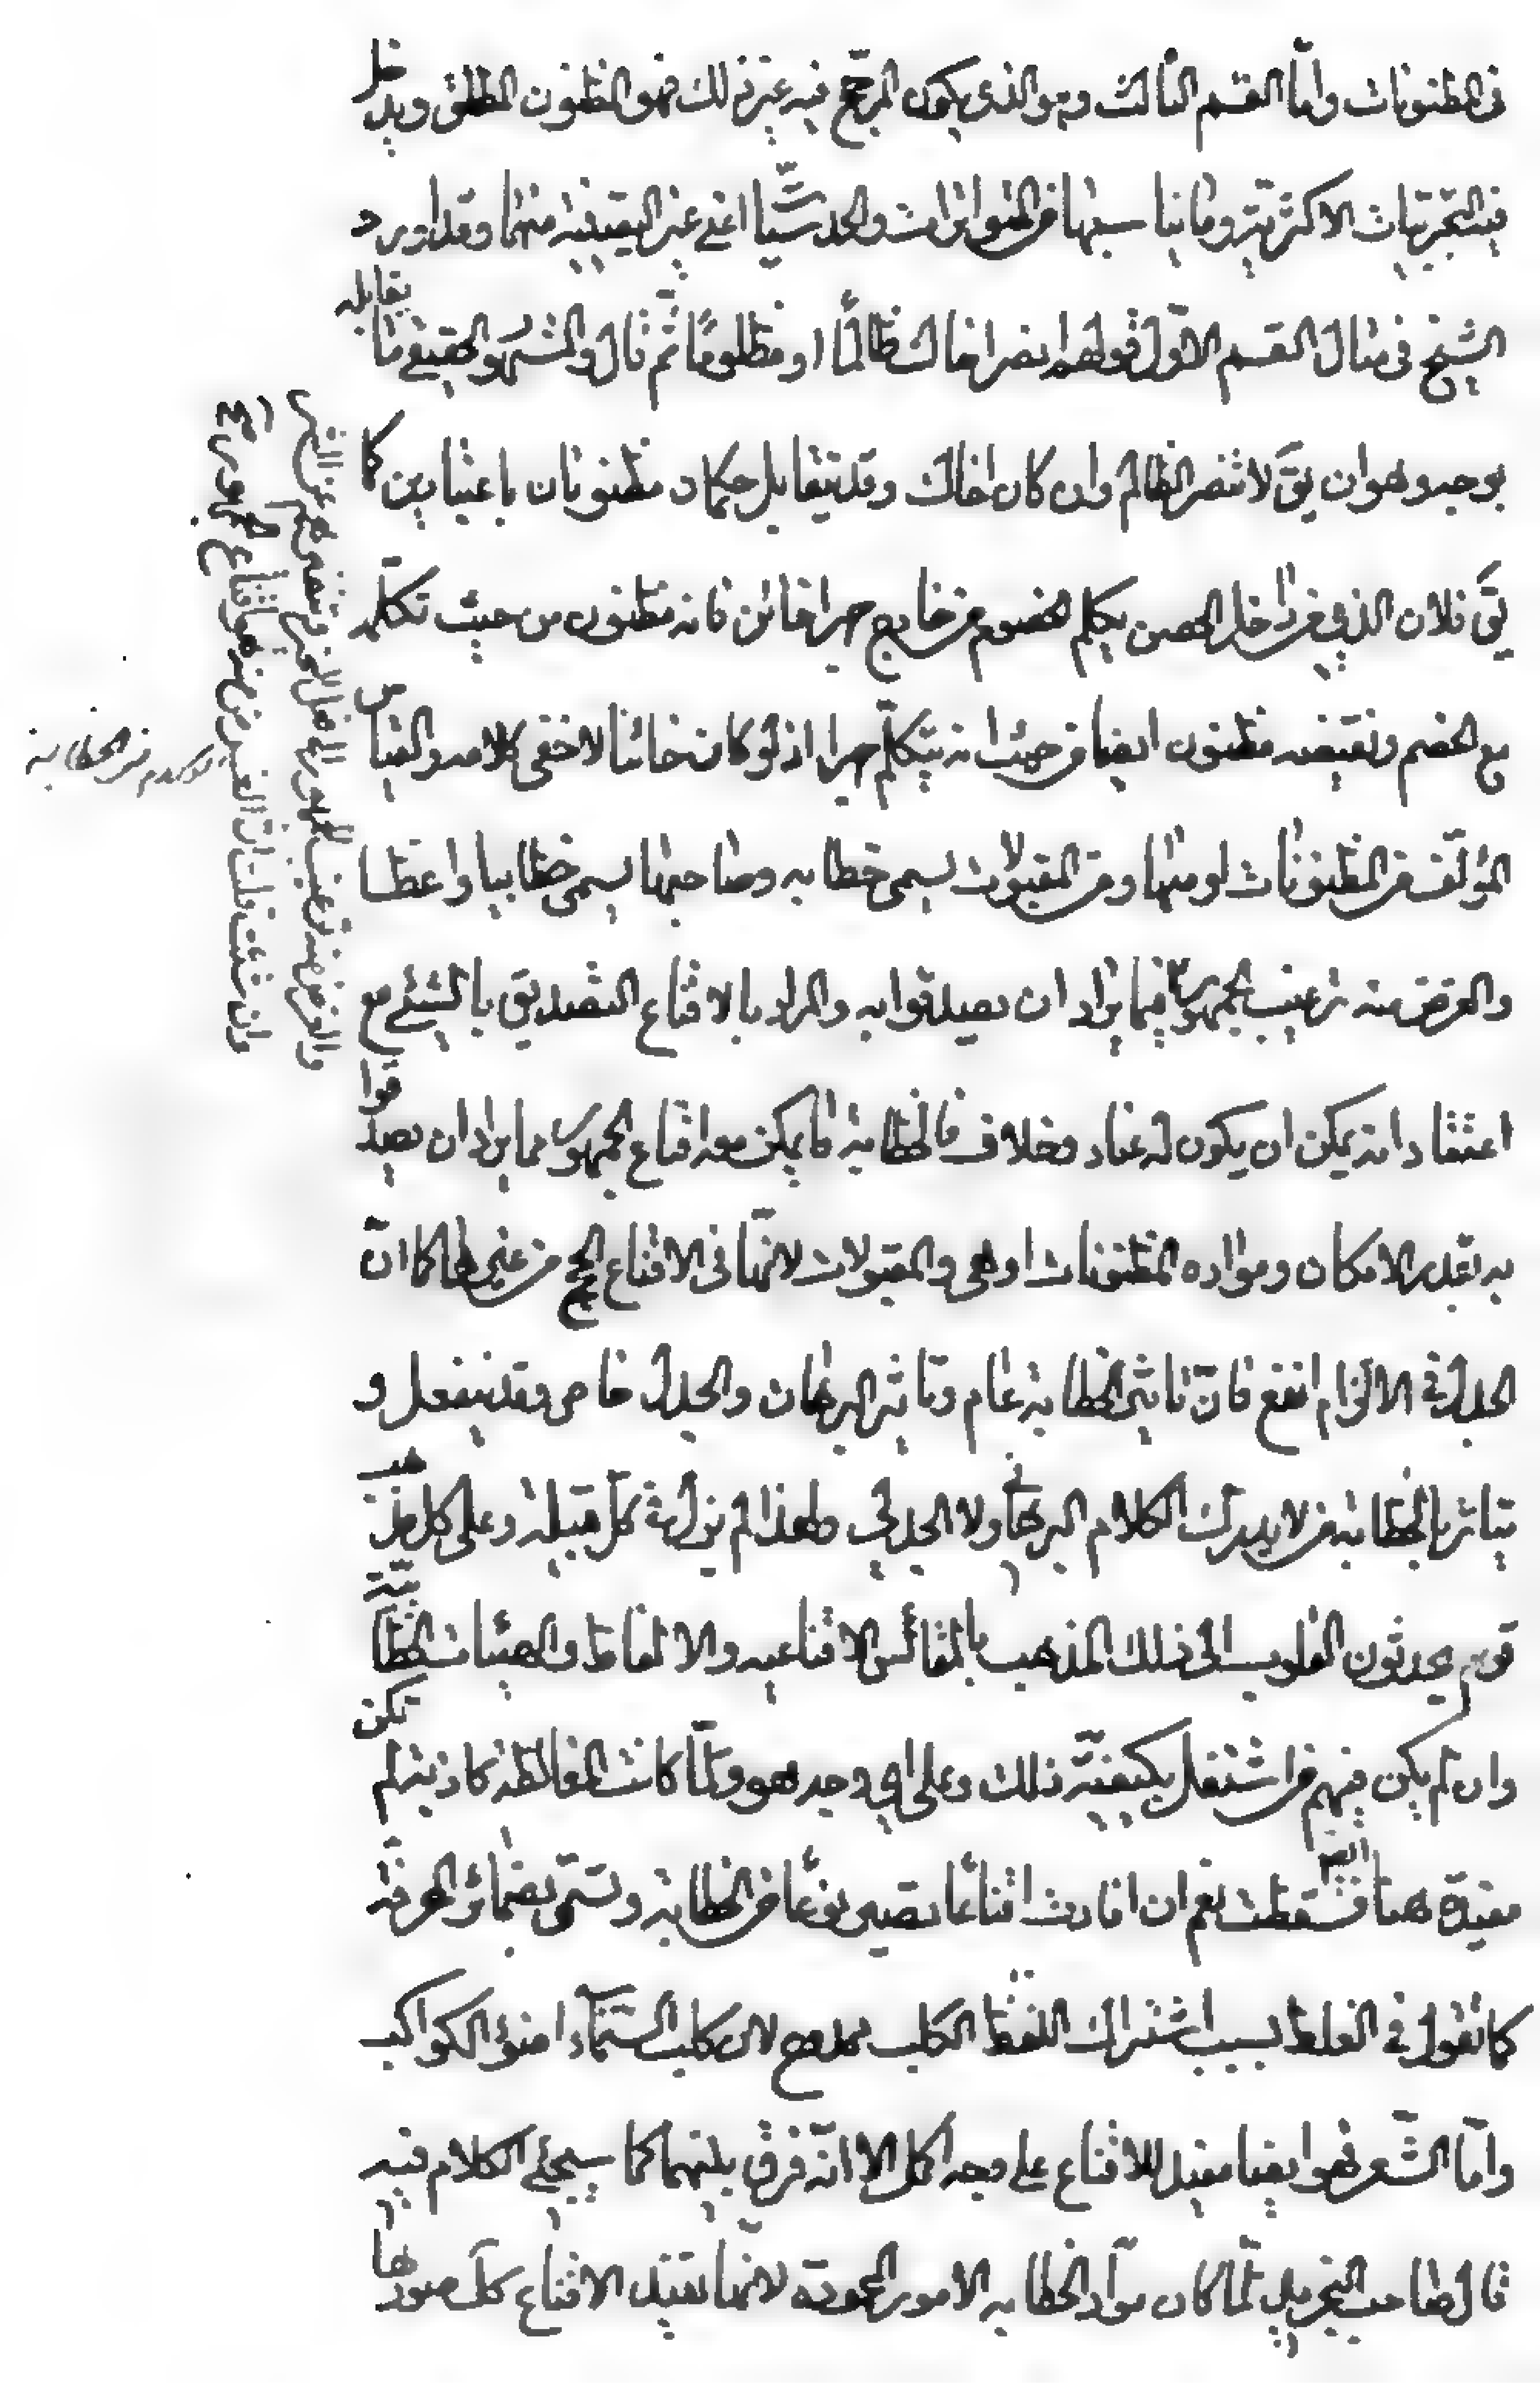 فى المظنونات وامّا القسم الثالث وهو الذى يكون المرجّح فيه غير ذلك فهو المظنون المطلق ويدخل
فيه التجربيّات الاكثريّة وما يناسبها من المتواترات والحدسيّات اعنى غير اليقينيّة منهما وقد اورد
الشيخ فى مثال القسم الاوّل قولهم انصر اخاك ظالمًا او مظلومًا ثم قال والمشهور الحقيقى ما يقابله
بوجه وهو ان يقَ لا تنصر الظالم وان كان اخاك وقد يتقابل حكمان مظنونان باعتبارين كما
يقَ فلان الذى من داخل الحصن يكلم الخصوم من خارج جهرا خائن فانه مظنون من حيث تكلّمه
مع الخصم ونقيضه مظنون ايضا من حيث انه يتكلّم جهرا اذ لو كان خائنا لاخفى كلامه والقياس
المؤلّف من المظنونات او منها ومن المقبولات يسمى خطابه وصاحبها يسمى خطابيا واعظا
والغرض منه ترغيب الجمهور فيما يراد ان يصدقوا به والمراد بالاقناع التصديق بالشيئ مع
اعتقاد انه يمكن ان يكون له عناد وخلاف فالخطابة ما يمكن معه اقناع الجمهور مما يراد ان يصدقوا
به بقدر الامكان وموادّه المظنونات او هى والمقبولات لانّها فى الاقناع انجح من غيرها كما انّ
الجدل فى الالزام انفع فانّ تاثير الخطابة عام وتاثير البرهان والجدل خاص وقد ينفعل و
يتاثر بالخطابة من لا يدرك الكلام البرهانى ولا الجدلى ولهذا لم يزل فى كلّ قبيلة وعلى كل مذهب
قوم يحدثون القلوب الى ذلك المذهب بالمقائس الاقناعيه والالفاظ والهيئات الخطابيّة
وان لم يكن فيهم من اشتغل بكيفيّة ذلك وعلى اى وجه هو ولمّا كانت المغالطة كاذبة لم تكن
مفيدة هنا فسقطت نعم ان افادت اقناعًا تصير نوعًا من الخطابة وتسمّى بضمائر المحرفة
كما تقول فى الغلط بسبب اشتراك اللفظ الكلب ممدوح لان كلب السّماء اضوئ الكواكب
وامّا الشّعر فهو ايضا مفيد للاقناع على وجه اكمل الا انّه فرق بينهما كما سيجئ الكلام فيه
قال صاحب التجريد لمّا كان موادّ الخطابه الامور المحمودة لانّها تفيد الاقناع كك صورها
والغرض منه ترغيب الجمهور الى فعل الخير وتنفيرهم عن الشر
وان شئت قلت انّ الغرض منه هو اقناع الجمهور